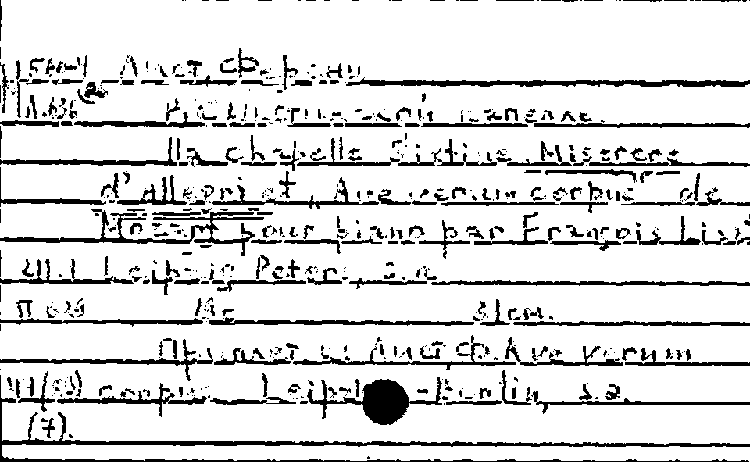 Лист, Ференц
В Сикстинской капелле.
[A la chapelle Sixtine. Miserere
d'Allegri et "Ave verum corpus" de
Mozart pour piano par François Liszt
Leipzig, Peters, s.a.
19 с 31 см.
Приплет. к: Лист, Ф. Ave verum
corpus. Leipzig-Berlin, s.a.
(7).